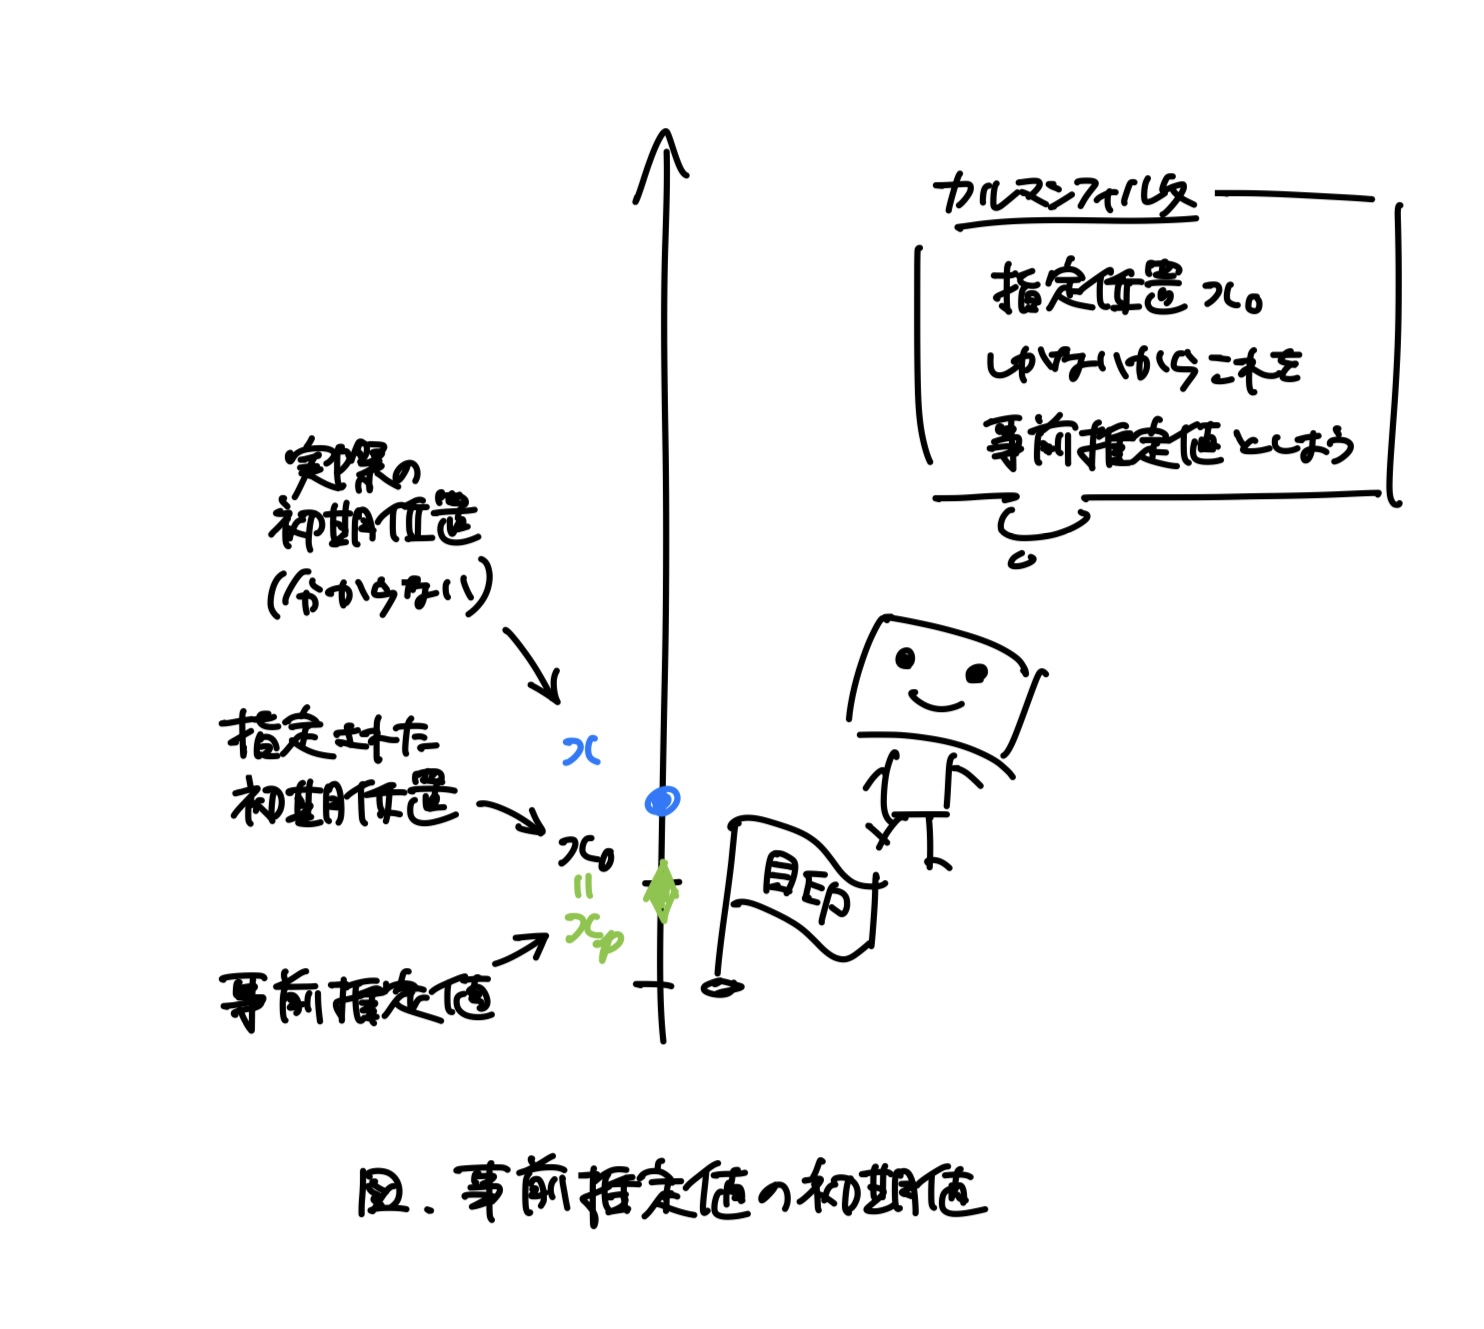 カルマンフィルタ
指定位置 x₀
しかないからこれを
事前推定値としよう
実際の
初期位置
(分からない)
x
指定された
初期位置
x₀
=
xₚ
事前推定値
目印
図. 事前推定値の初期値